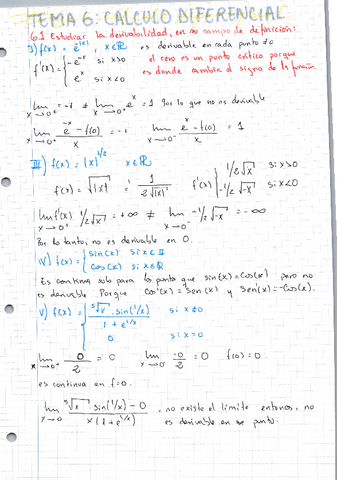 TEMA 6: CALCULO DIFERENCIAL
6.1 Estudiar la derivabilidad, en su campo de definición:
I) f(x) = e^{-|x|}, x∈ℝ es derivable en cada punto ≠0
f'(x) = { -e^{-x} si x>0 el cero es un punto crítico porque
e^{x} si x<0 es donde cambia el signo de la función
lim x→0⁺ = -1 ≠ lim x→0⁻ e^{x} = 1 Por lo que no es derivable
lim x→0⁺ (e^{-x} - f(0))/x = -1 lim x→0⁻ (e^{x} - f(0))/x = 1
III) f(x) = |x|^{1/2} x∈ℝ
f(x) = √|x| ; 1/(2√|x|) f'(x) { 1/2√x si x>0
-1/2√-x si x<0
lim f'(x) x→0⁺ 1/2√x = +∞ ≠ lim x→0⁻ -1/2√-x = -∞
Por lo tanto, no es derivable en 0.
IV) f(x) = { sin(x) si x∈
cos(x) si x∈
Es continua solo para los puntos que sin(x) = cos(x) pero no
es derivable. Porque cos'(x) = sen(x) y sen'(x) = -cos(x).
V) f(x) = { ⁵√x · sin(1/x) / 1 + e^{1/x} si x≠0
0 si x=0
lim x→0⁺ 0/2 = 0 lim x→0⁻ -0/2 = 0 f(0) = 0
es continua en f=0.
lim x→0 (⁵√x · sin(1/x) - 0) / x(1+e^{1/x}) , no existe el límite entonces, no
es derivable en ese punto.